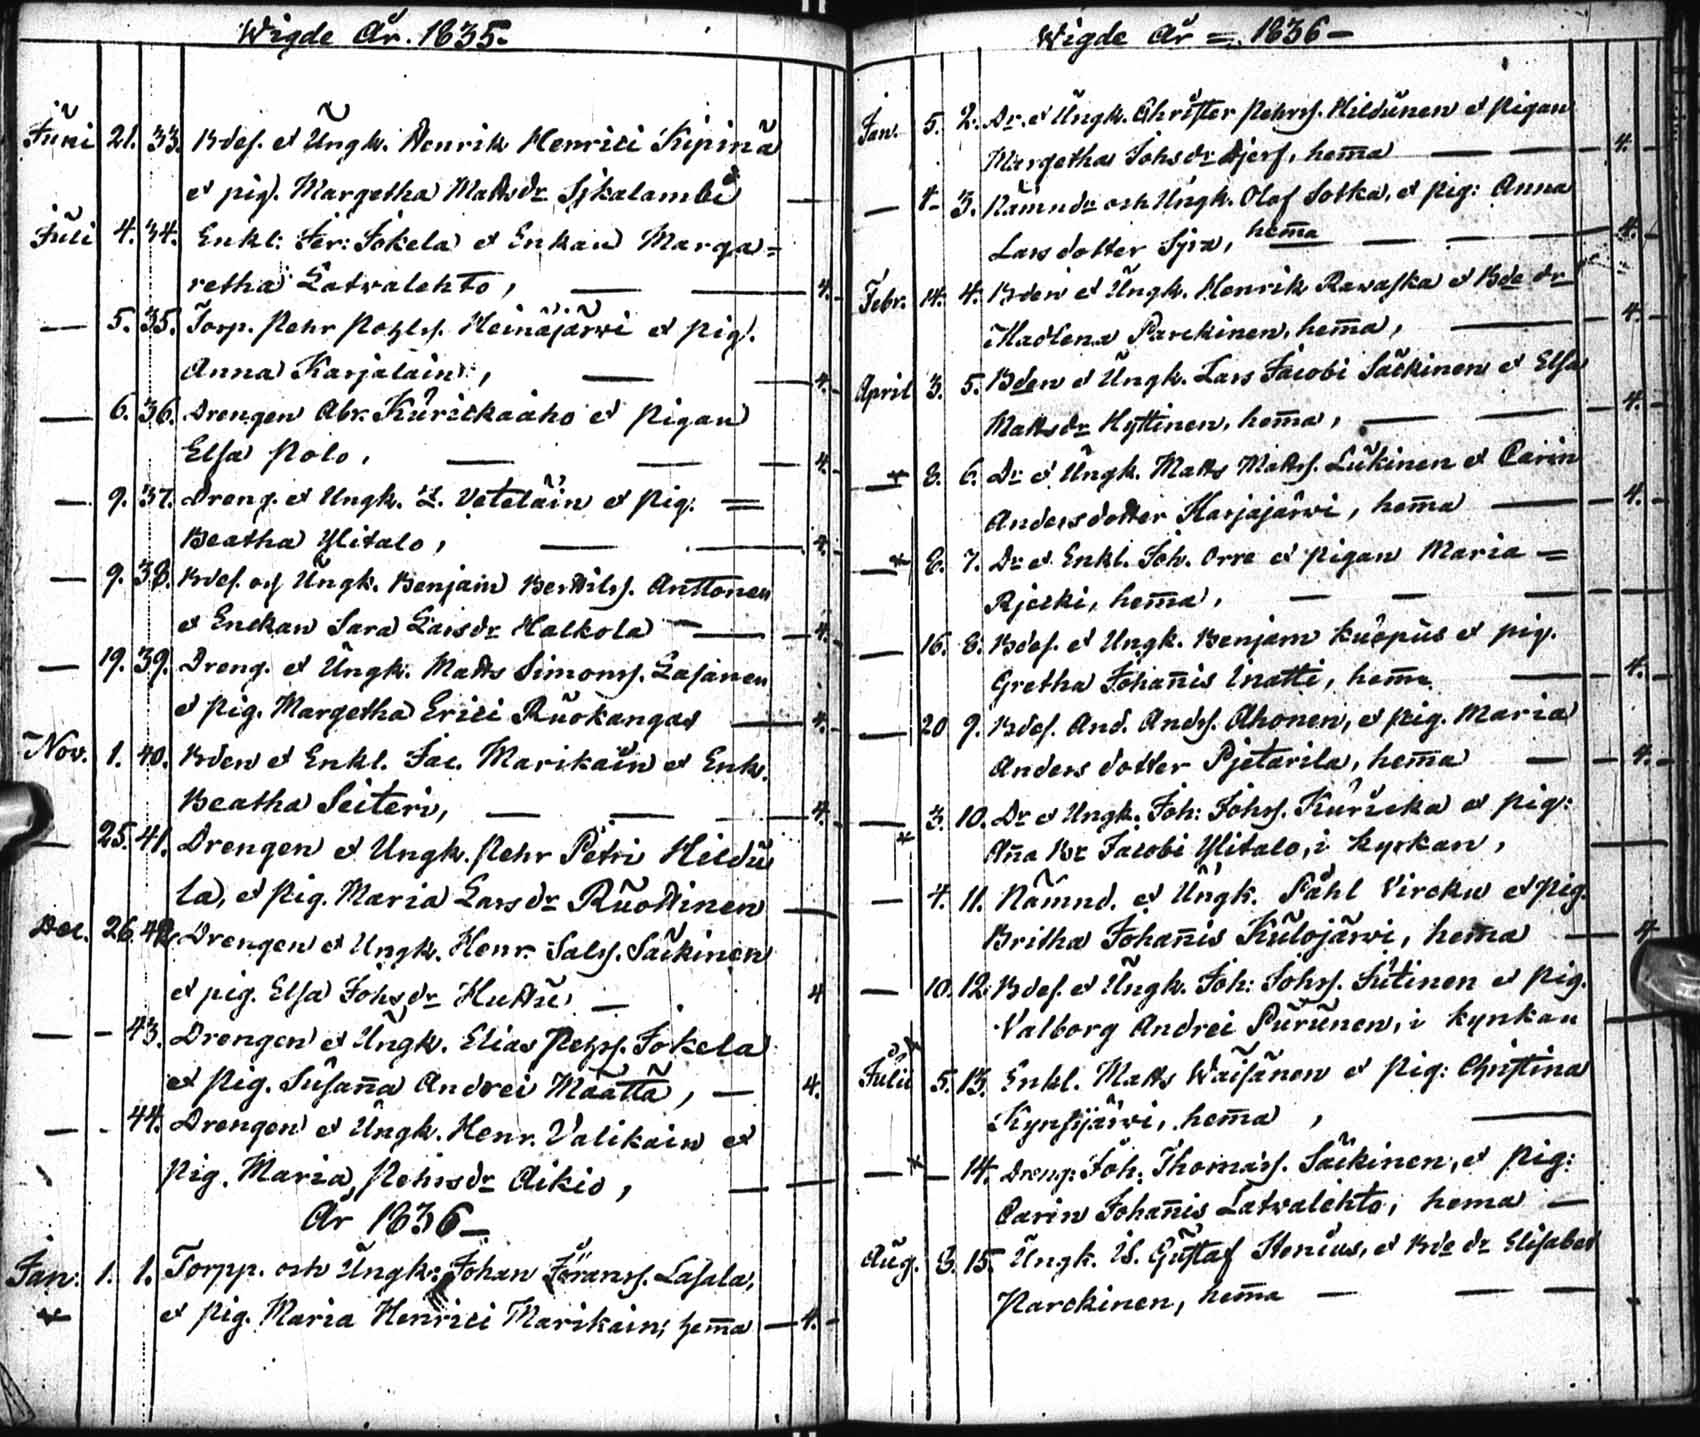 Wigde År. 1835.
Juni 21. 33. Bdes. et Ungk. Henrik Henrici Kipinä
et pig. Margetha Mattsdr Sjkalambi
Juli 4. 34. Enkl: Jer: Jokela et Enkan Marga=
retha Latvalehto, 4.
— 5. 35. Torp. Pehr Pohls. Heinäjärwi et pig.
Anna Karjalain:, 4.
— 6. 36. Drengen Abr. Kurickaaho et Pigan
Elsa Polo, 4.
— 9. 37. Dreng. et Ungk. L. Veteläin et Pig: =
Beatha Ylitalo, 4.
— 9. 38. Bdes. och Ungk. Benjam Bertils. Anttonen
et Enckan Sara Larsdr Halkola 4.
— 19. 39. Dreng. et Ungk. Matts Simons. Lasanen
et Pig. Margetha Erici Ruokangas 4.
Nov. 1. 40. Bden et Enkl. Jac. Marikain et Enk.
Beatha Seiteri, 4.
— 25. 41. Drengen et Ungk. Pehr Petri Heldu
la, et Pig. Maria Larsdr Ruottinen —
Dec. 26. 42. Drengen et Ungk. Henr. Sals. Säckinen
et pig. Elsa Johsdr Huttu 4
— – 43. Drengen et Ungk. Elias Pehrs. Jokela
et Pig. Susana Andrei Määttä, — 4.
— - 44. Drengen et Ungk. Henr. Valikain et
Pig. Maria Pehrsdr Aikio, —
År 1836—
Jan. 1. 1. Torpp. och Ungk: Johan Jöranss. Lasala,
et Pig. Maria Henrici Marikain; hema — 4.
Wigde År =. 1836—
Jan. 5. 2. Dr. et Ungk. Christer Pehrs. Hildunen et Pigan
Margetha Johsdr Ajers, hema — 4.
— 4- 3. Nämndr och Ungk. Olof Sotka, et pig: Anna
Lars dotter Syra, hema — 4.
Febr. 14. 4. Bden et Ungk. Henrik Ravaska et Bde dr
Madlena Parckinen, hema, — 4.
April 3. 5. Bden et Ungk. Lars Jacobi Säckinen et Elsa
Mattsdr Hyttinen, hema, — 4.
— 8. 6. Dr et Ungk. Matts Matts. Lukinen et Carin
Andersdotter Harjajärwi, hema — 4.
— 8. 7. Dr et Enkl. Joh. Orre et pigan Maria =
Rjecki, hema, —
— 16. 8. Bdes. et Ungk. Benjam Kuopus et pig.
Gretha Johanis Inatti, hema — 4.
— 20 9. Bdes. And. Ands. Ahonen, et pig. Maria
Anders dotter Pjetarila, hema — 4.
— 3. 10. Dr et Ungk. Joh: Johs. Kuricka et pig:
Aña Br Jacobi Ylitalo, i kyrkan, —
— 4. 11. Nämnd. et Ungk. Påhl Virckun et Pig.
Britha Johanis Kulojärwi, hema — 4
— 10. 12: Bdes. et Ungk. Joh: Johs. Jutinen et Pig.
Valborg Andrei Purunen, i kyrkan —
Julii 5. 13. Enkl. Matts Waisänen et Pig: Christina
Kynsijärwi, hema, —
— – 14. Dreng: Joh: Thomas's. Säckinen, et Pig:
Carin Johanis Latvalehto, hema —
Aug. 3. 15. Ungk. Is. Gustaf Stenius, et Bde dr Elisabet
Parckinen, hema —